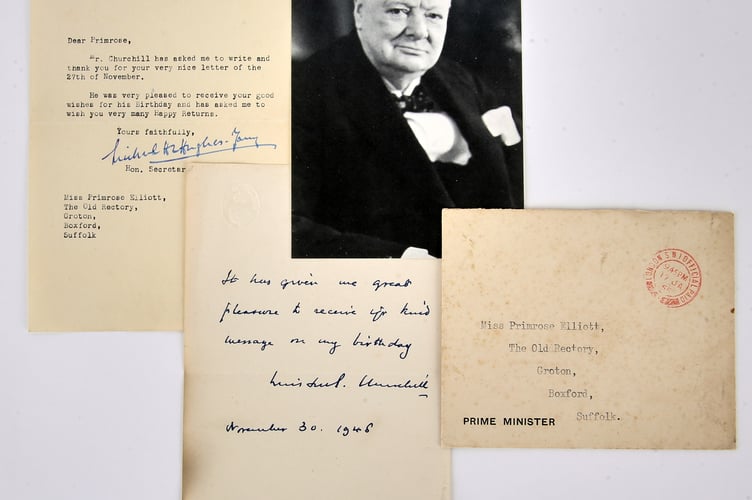 Dear Primrose,
Mr. Churchill has asked me to write and
thank you for your very nice letter of the
27th of November.
He was very pleased to receive your good
wishes for his Birthday and has asked me to
wish you very many Happy Returns.
Yours faithfully,
Hon. Secretar
Miss Primrose Elliott,
The Old Rectory,
Groton,
Boxford,
Suffolk
It has given me great
pleasure to receive yr kind
message on my birthday
Winston S. Churchill
November 30. 1946
LONDON S.W.1 OFFICIAL PAID
Miss Primrose Elliott,
The Old Rectory,
Groton,
Boxford,
Suffolk.
PRIME MINISTER